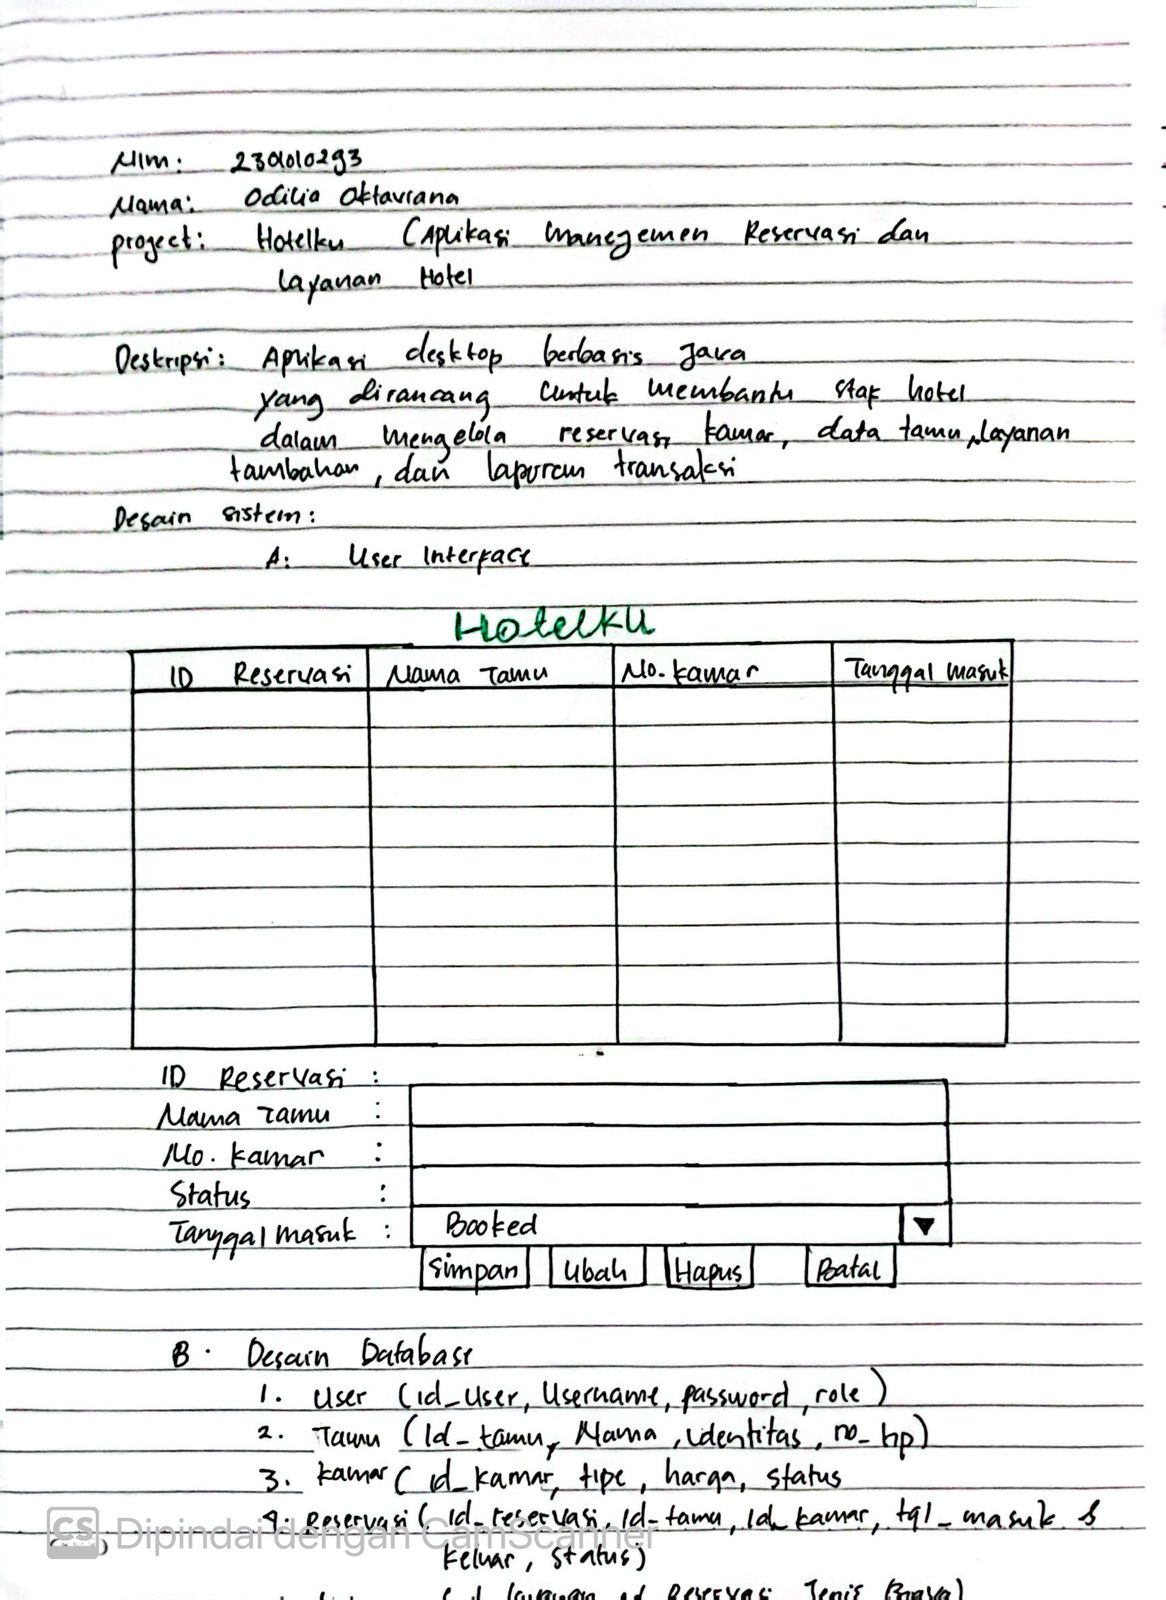 Nim: 230010293
Nama: Odilia Oktaviana
project: Hotelku (Aplikasi manegemen Reservasi dan
Layanan Hotel
Deskripsi: Aplikasi desktop berbasis Java
yang dirancang untuk membantu staf hotel
dalam mengelola reservasi kamar, data tamu, layanan
tambahan, dan laporan transaksi
Desain sistem:
A: User Interface
HotelkU
ID Reservasi Nama Tamu No. kamar Tanggal masuk
ID Reservasi :
Nama Tamu :
No. kamar :
Status :
Tanggal masuk : Booked
Simpan Ubah Hapus Batal
B. Desain Database
1. User (id_user, Username, password, role)
2. Tamu (Id_tamu, Nama, identitas, no_hp)
3. kamar (id_kamar, tipe, harga, status
4. Reservasi (Id_reservasi, Id_tamu, Id_kamar, tgl_masuk &
keluar, status)
Reservasi, Jenis
CS Dipindai dengan CamScanner